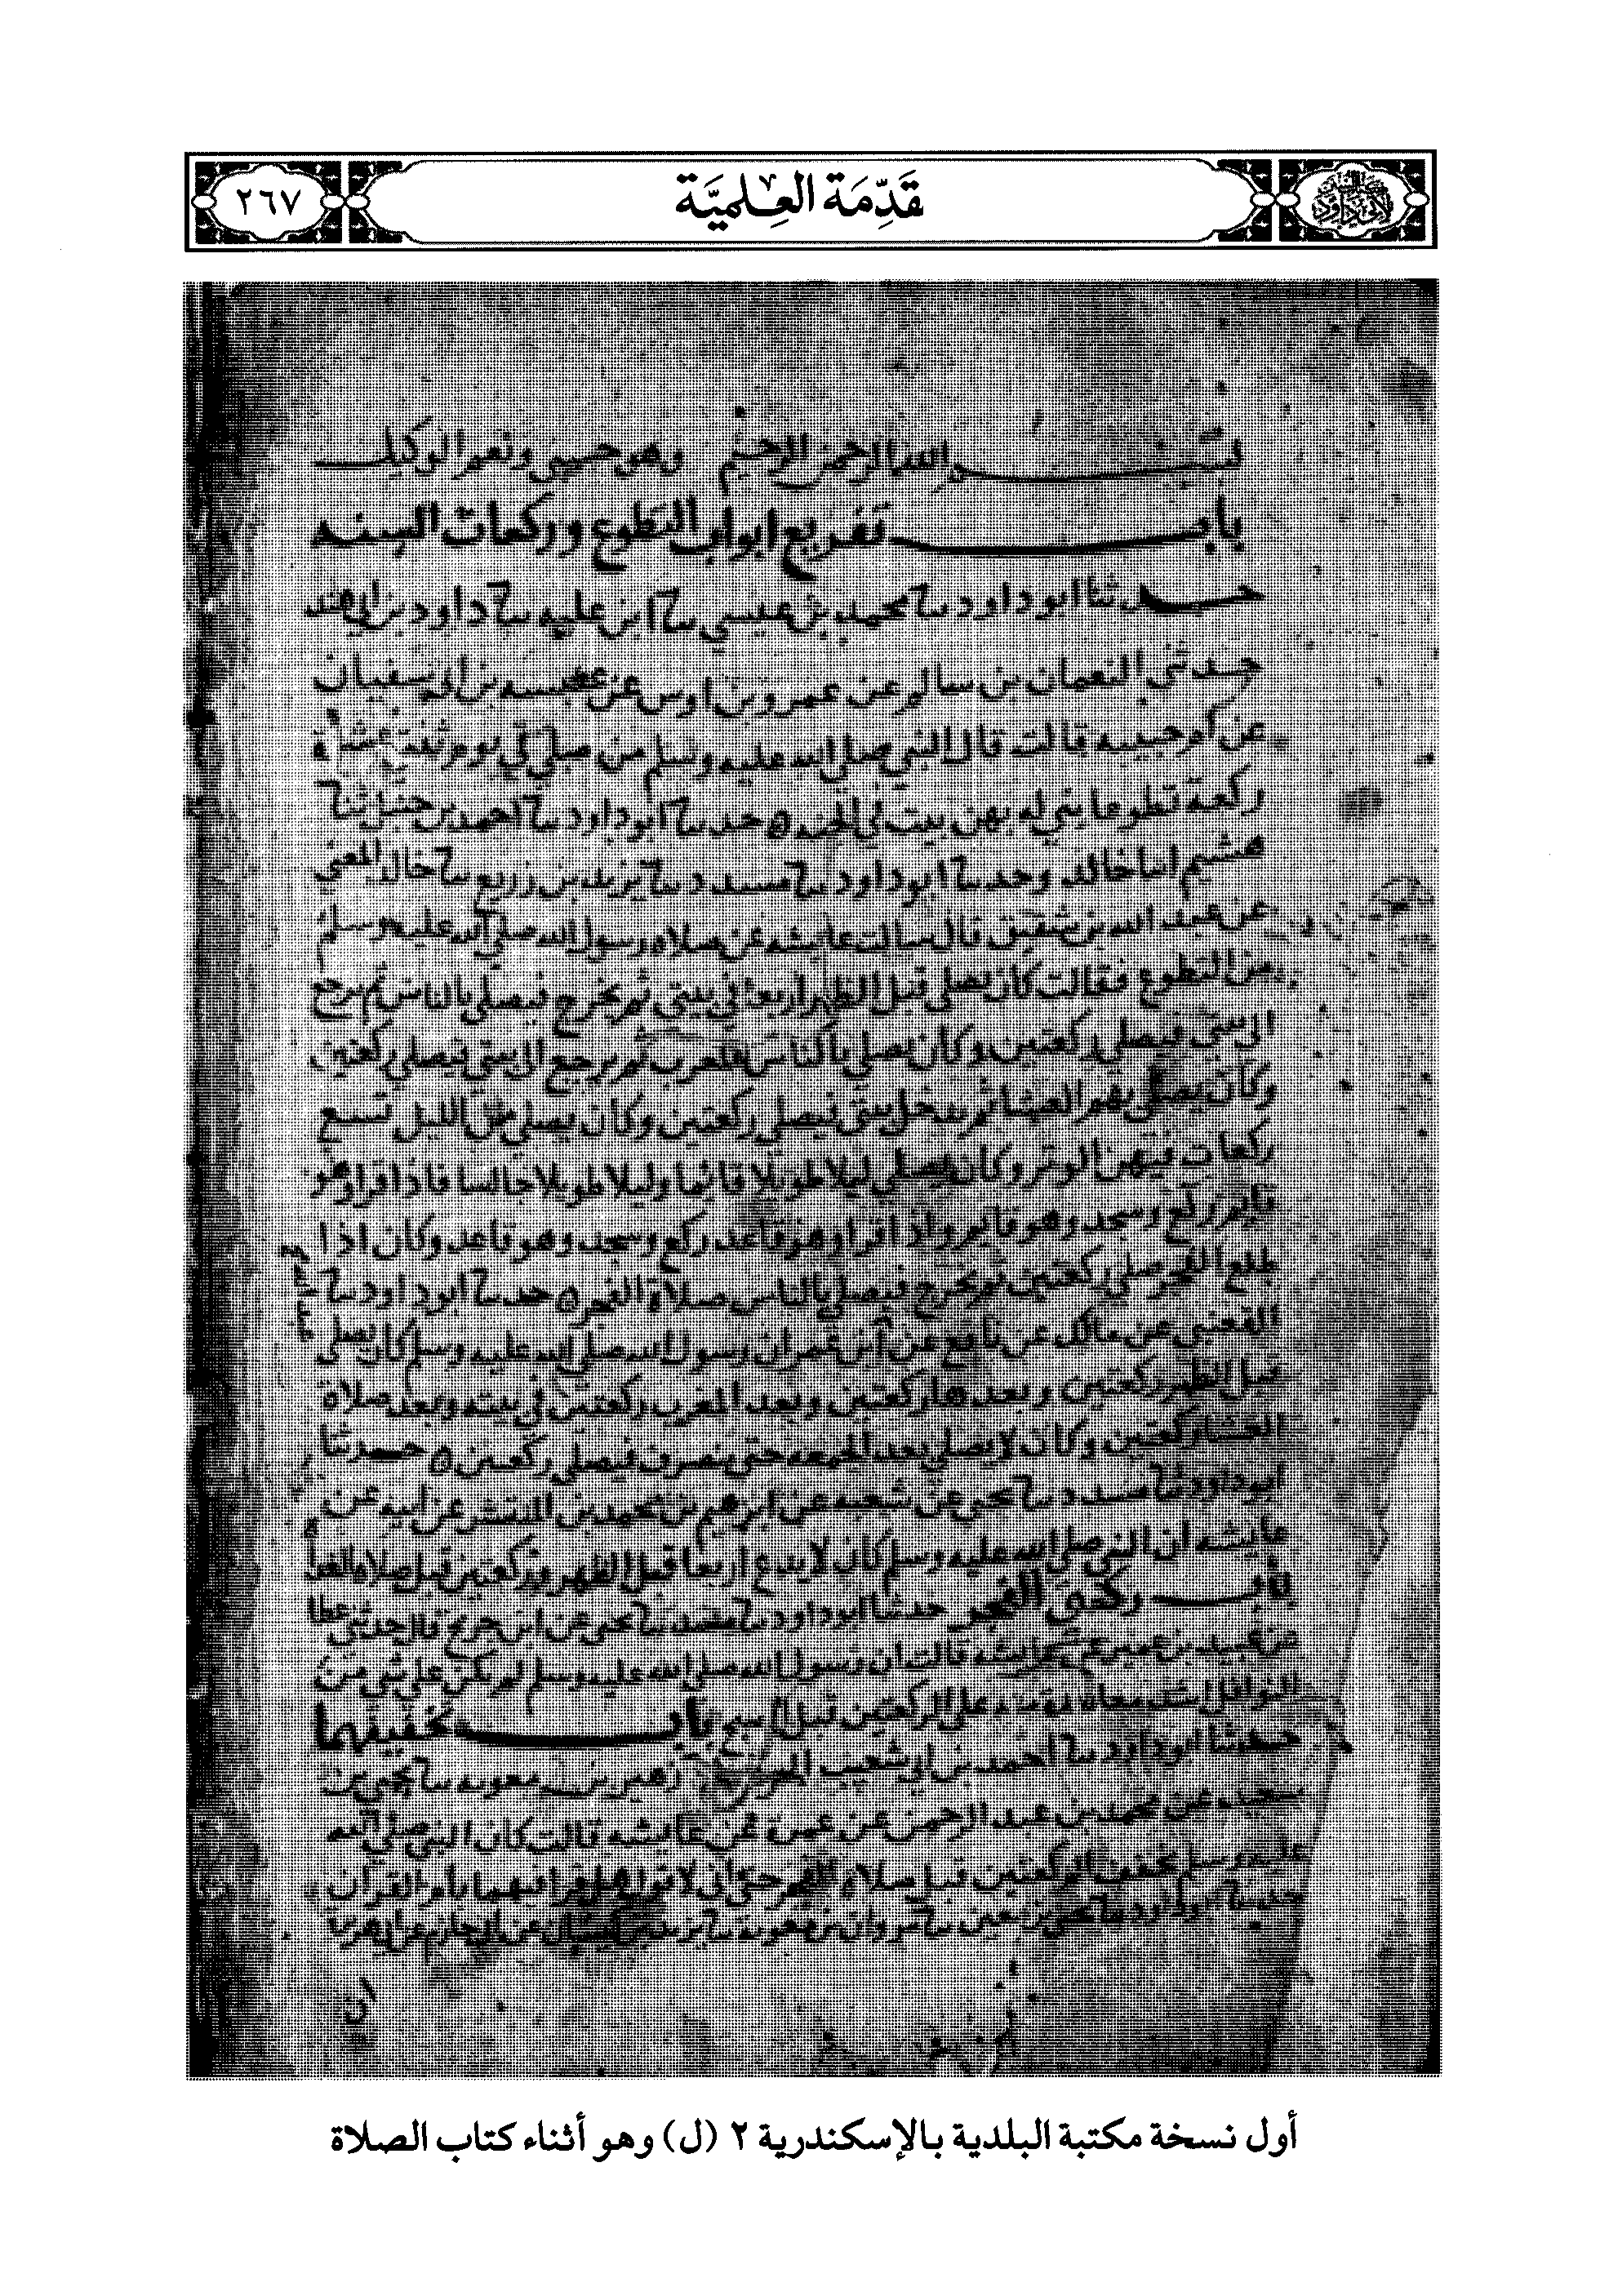 لأبي داود
قَدِّمَة العِلميَّة
٢٦٧
بسم الله الرحمن الرحيم وهو حسبي ونعم الوكيل
باب تفريع ابواب التطوع وركعات السنه
حدثنا ابو داود سا محمد بن عيسي سا ابن عليه سا داود بن ابي هند
حدثني النعمان بن سالم عن عمرو بن اوس عن عنبسه بن ابي سفيان
عن ام حبيبه قالت قال النبي صلي الله عليه وسلم من صلي في يوم ثنتي عشرة
ركعة تطوعا بني له بهن بيت في الجنه ه حدسا ابو داود سا احمد بن حنبل ثنا
هشيم انبا خالد وحدسا ابو داود سا مسدد سا يزيد بن زريع سا خالد المعني
عن عبد الله بن شقيق قال سالت عايشه عن صلاه رسول الله صلي الله عليه وسلم
من التطوع فقالت كان يصلي قبل الظهر اربعا في بيتي ثم يخرج فيصلي بالناس ثم يرجع
الي بيتي فيصلي ركعتين وكان يصلي بالناس المغرب ثم يرجع الي بيتي فيصلي ركعتين
وكان يصلي بهم العشا ثم يدخل بيتي فيصلي ركعتين وكان يصلي من الليل تسع
ركعات فيهن الوتر وكان يصلي ليلا طويلا قائما وليلا طويلا جالسا فاذا قرا وهو
قايم ركع وسجد وهو قايم واذا قرا وهو قاعد ركع وسجد وهو قاعد وكان اذا
طلع الفجر صلي ركعتين ثم يخرج فيصلي بالناس صلاة الفجر ه حدسا ابو داود سا
القعنبي عن مالك عن نافع عن ابن عمر ان رسول الله صلي الله عليه وسلم كان يصلي
قبل الظهر ركعتين وبعدها ركعتين وبعد المغرب ركعتين في بيته وبعد صلاة
العشا ركعتين وكان لا يصلي بعد الجمعه حتي ينصرف فيصلي ركعتين ه حدثنا
ابو داود سا مسدد سا يحيي عن شعبه عن ابرهيم بن محمد بن المنتشر عن ابيه عن
عايشه ان النبي صلي الله عليه وسلم كان لا يدع اربعا قبل الظهر وركعتين قبل صلاه الغداه
باب ركعتي الفجر حدثنا ابو داود سا مسدد سا يحيي عن ابن جريج قال حدثني عطا
عن عبيد بن عمير عن عايشه قالت ان رسول الله صلي الله عليه وسلم لم يكن علي شي من
النوافل اشد معاهده منه علي الركعتين قبل الصبح باب تخفيفهما
حدثنا ابو داود سا احمد بن ابي شعيب الحراني زهير بن معويه سا يحيي بن
سعيد عن محمد بن عبد الرحمن عن عمرة عن عايشه قالت كان النبي صلي الله
عليه وسلم يخفف الركعتين قبل صلاه الفجر حتي اني لاقول هل قرا فيهما بام القرآن
حدسا ابو داود سا يحيي بن معين سا مروان بن معويه سا يزيد بن كيسان عن ابي حازم عن ابي هريرة
ان
أول نسخة مكتبة البلدية بالإسكندرية ٢ (ل) وهو أثناء كتاب الصلاة